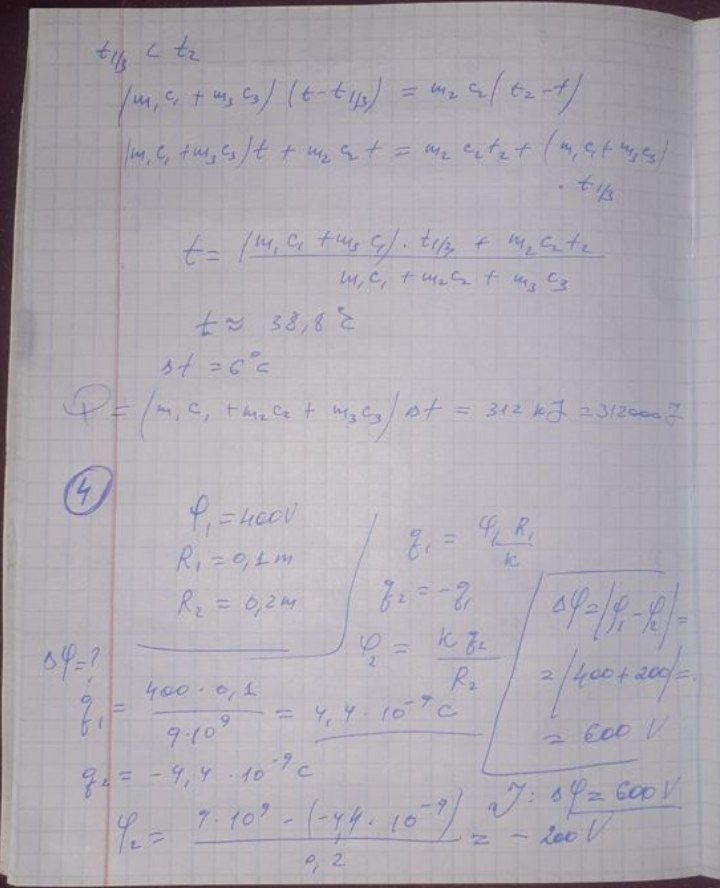 t₁/₃ < t₂
(m₁c₁ + m₃c₃)(t - t₁/₃) = m₂c₂(t₂ - t)
(m₁c₁ + m₃c₃)t + m₂c₂t = m₂c₂t₂ + (m₁c₁ + m₃c₃)
· t₁/₃
t = ((m₁c₁ + m₃c₃) · t₁/₃ + m₂c₂t₂) / (m₁c₁ + m₂c₂ + m₃c₃)
t ≈ 38,8°C
Δt = 6°C
Q = (m₁c₁ + m₂c₂ + m₃c₃) Δt = 312 kJ = 312000 J
4
φ₁ = 400V
R₁ = 0,1m
R₂ = 0,2m
Δφ = ?
q₁ = φ₁R₁ / k
q₂ = -q₁
φ₂ = kq₂ / R₂
Δφ = |φ₁ - φ₂| =
= |400 + 200| =
= 600 V
q₁ = 400 · 0,1 / 9·10⁹ = 4,4 · 10⁻⁹ C
q₂ = -4,4 · 10⁻⁹ C
φ₂ = 9·10⁹ · (-4,4 · 10⁻⁹) / 0,2 = -200V
: Δφ = 600V